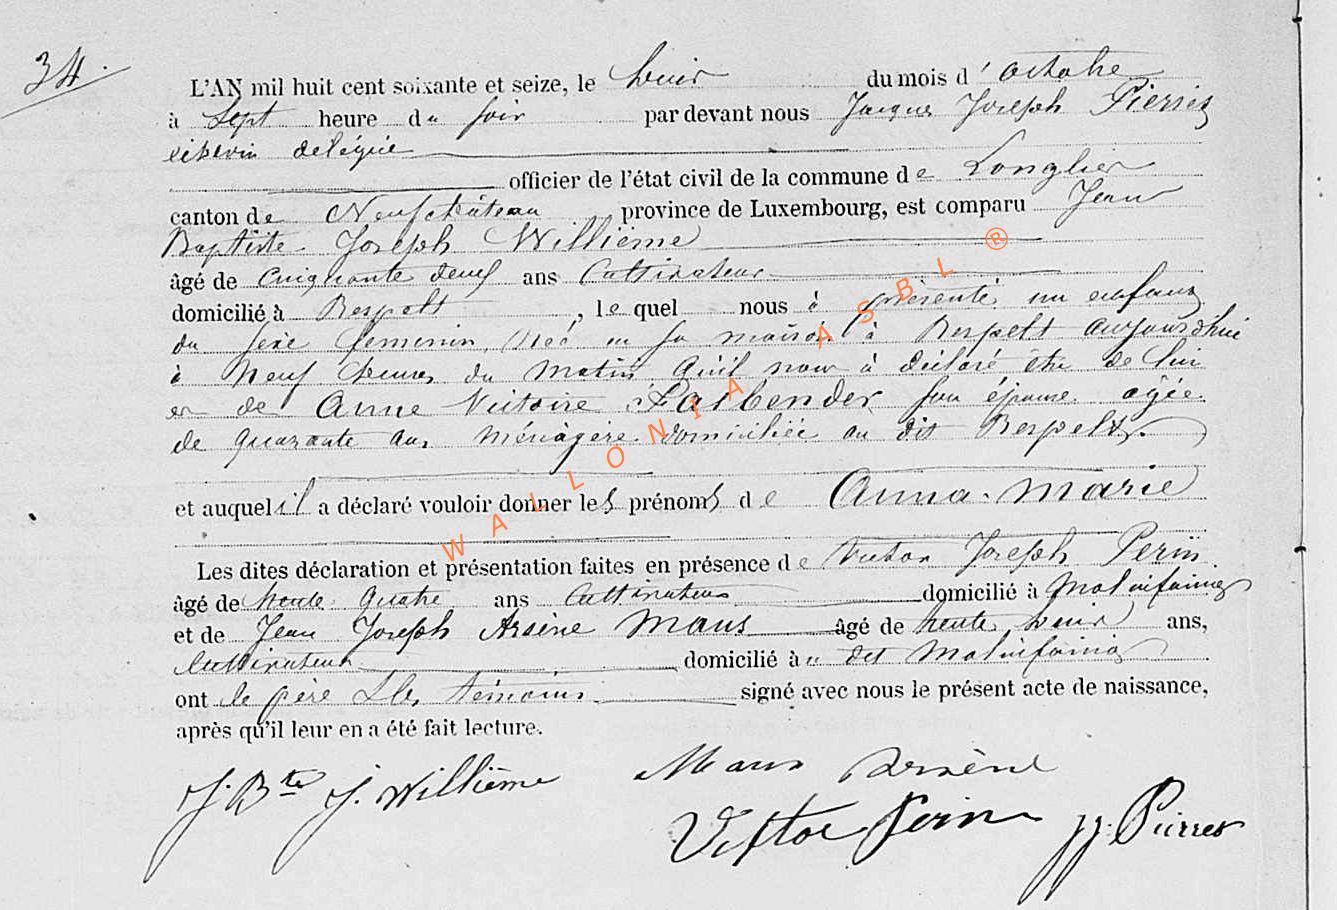 34.
L'AN mil huit cent soixante et seize, le huit du mois d'octobre
à Sept heure du soir par devant nous Jacques Joseph Pierret
échevin délégué
officier de l'état civil de la commune de Longlier
canton de Neufchâteau province de Luxembourg, est comparu Jean
Baptiste Joseph Willième
âgé de cinquante deux ans Cultivateur
domicilié à Respelt, lequel nous à présenté un enfant
du sexe féminin, née en sa maison à Respelt aujourd'hui
à neuf heures du matin qu'il nous à déclaré être de lui
et de Anne Victoire Fasbender son épouse agée
de quarante ans, ménagère domiciliée au dit Respelt.
et auquel il a déclaré vouloir donner les prénoms de Anna-Marie
Les dites déclaration et présentation faites en présence de Victor Joseph Perin
âgé de trente quatre ans Cultivateur domicilié à Molinfaing
et de Jean Joseph Arsène Maus âgé de trente huit ans,
Cultivateur domicilié au dit Molinfaing
ont le père & les témoins signé avec nous le présent acte de naissance,
après qu'il leur en a été fait lecture.
J. Bte J. Willième
Maus Arsène
Victor Perin
JJ. Pierret
WALLONIA ASBL ®